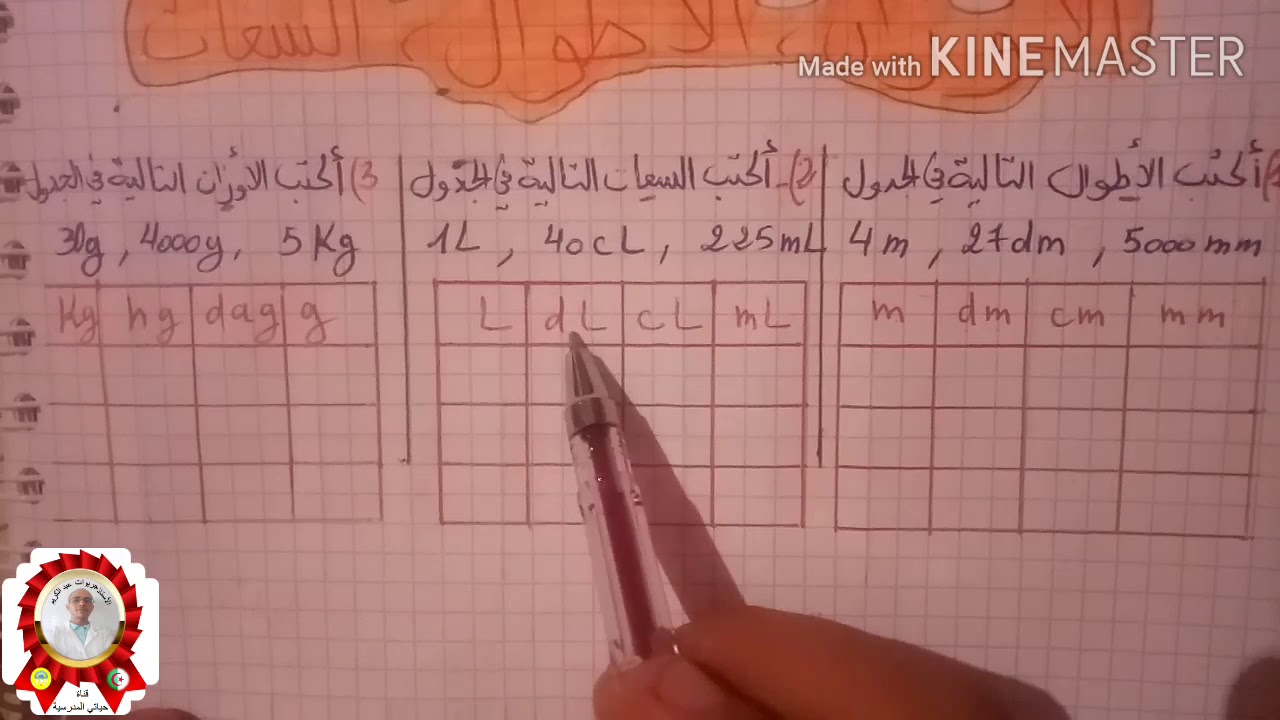 الأوزان، الأطوال، السعات
Made with KINEMASTER
1) أكتب الأطوال التالية في الجدول
4 m , 27dm , 5000 mm
m dm cm mm
2)- أكتب السعات التالية في الجدول
1L , 40cL , 225mL
L dL cL mL
3) أكتب الأوزان التالية في الجدول
30g , 4000g , 5 Kg
Kg hg dag g
قناة
حياتي المدرسية